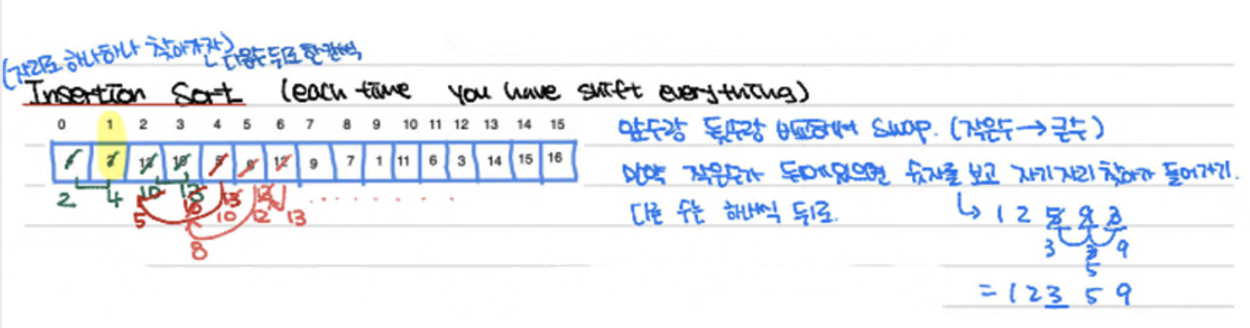 (자리로 하나하나 찾아가자) 다음수 뒤로 한칸씩
Insertion Sort (each time you have shift everything)
0 1 2 3 4 5 6 7 8 9 10 11 12 13 14 15
9 7 1 11 6 3 14 15 16
2 4 10 13
5 10 12 13
8
앞수랑 뒷수랑 비교해서 swap. (작은수→큰수)
만약 작은수가 뒤에있으면 숫자를 보고 자기자리 찾아가 들어가기.
다른 수는 하나씩 뒤로.
↳ 1 2 5 9 3
3 9
5
= 1 2 3 5 9